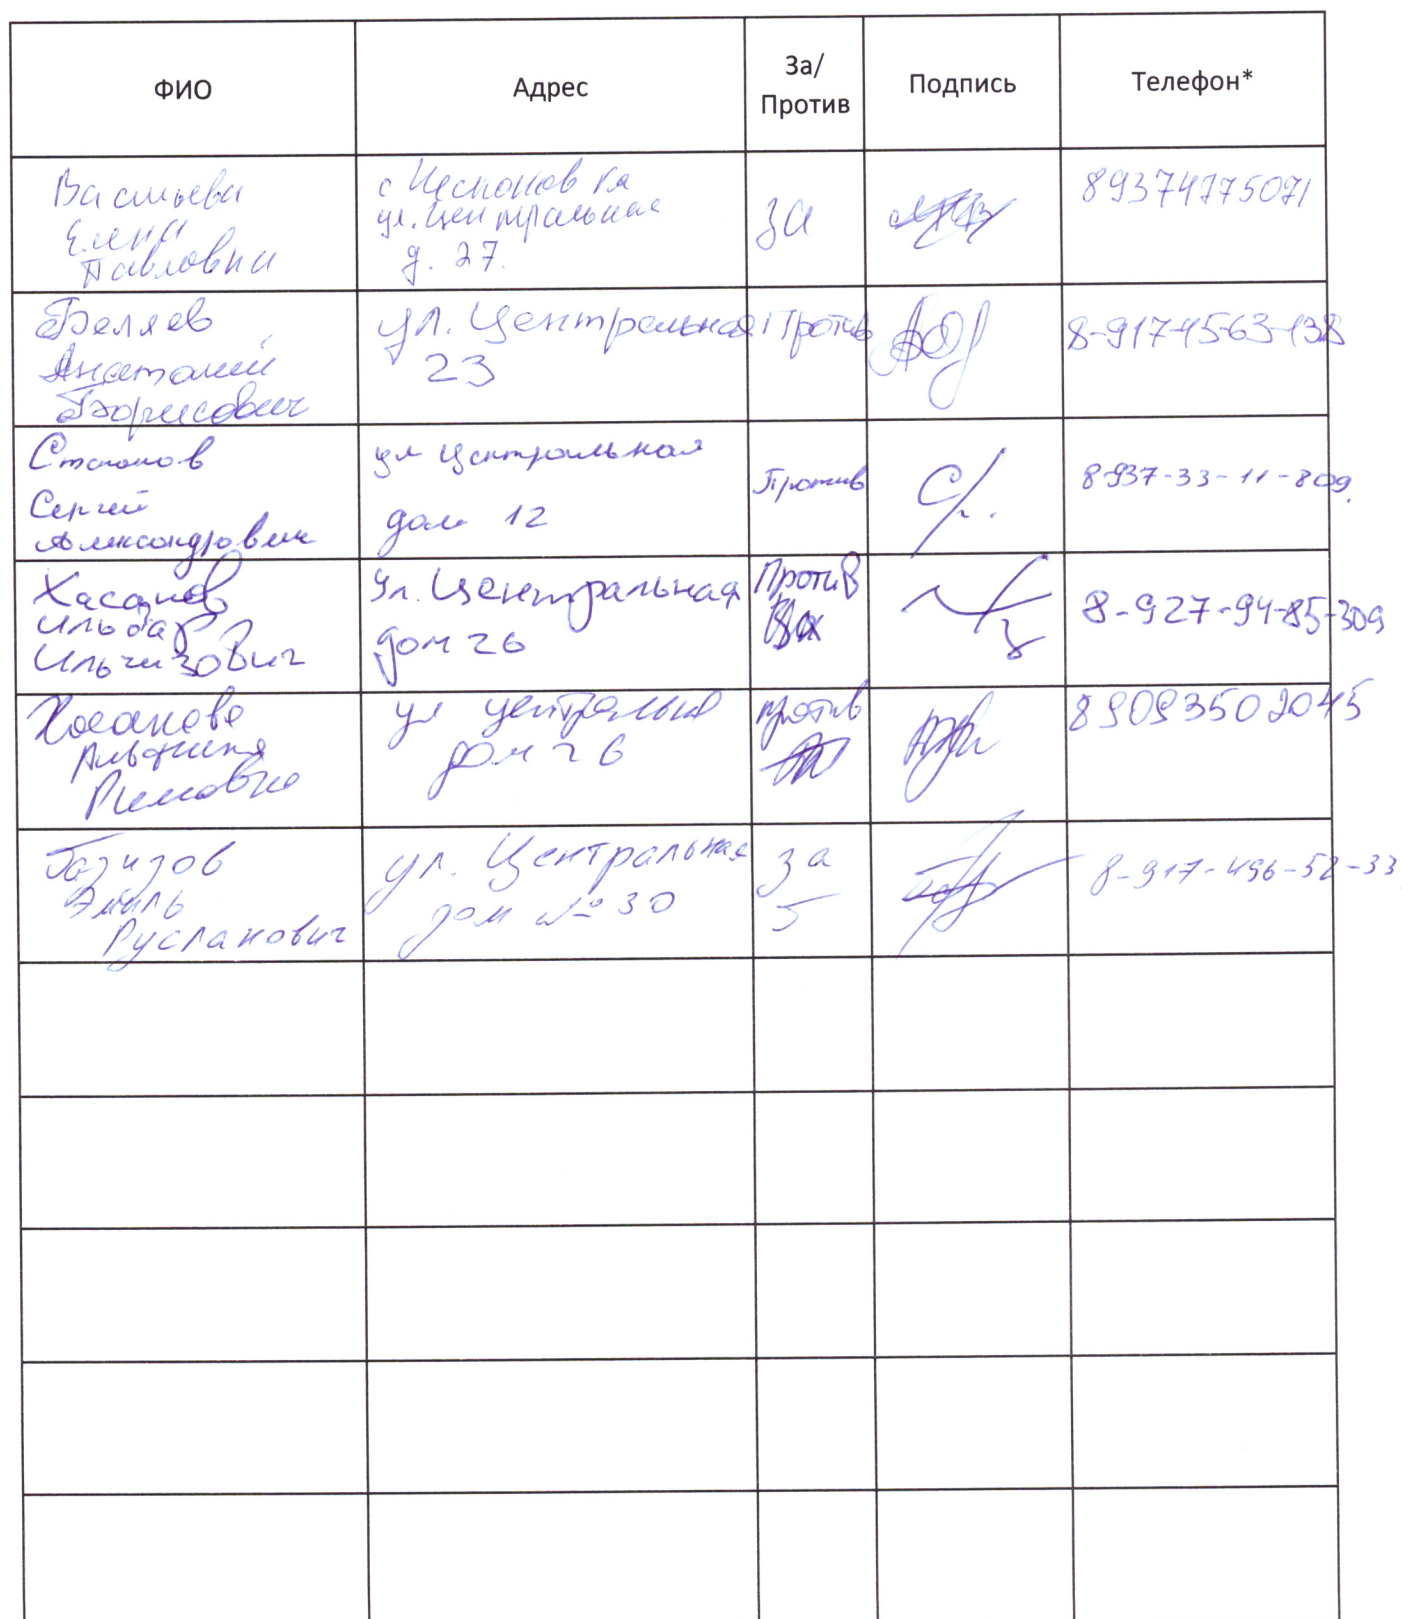 ФИО
Адрес
За/
Против
Подпись
Телефон*
Васильева
Елена
Павловна
ул. Центральная
д. 27.
за
89374775071
Беляев
Анатолий
Борисович
ул. Центральная
23
Против
8-9174563-138
Степанов
Сергей
Александрович
ул Центральная
дом 12
Против
8-937-33-11-809.
Хасанов
Ильбар
Ильгизович
Ул. Центральная
дом 26
Против
8-927-94-85-309
Хасанова
Римовна
ул центральная
дом 26
против
89093502045
Газизов
Эмиль
Русланович
ул. Центральная
дом № 30
за
5
8-917-496-52-33